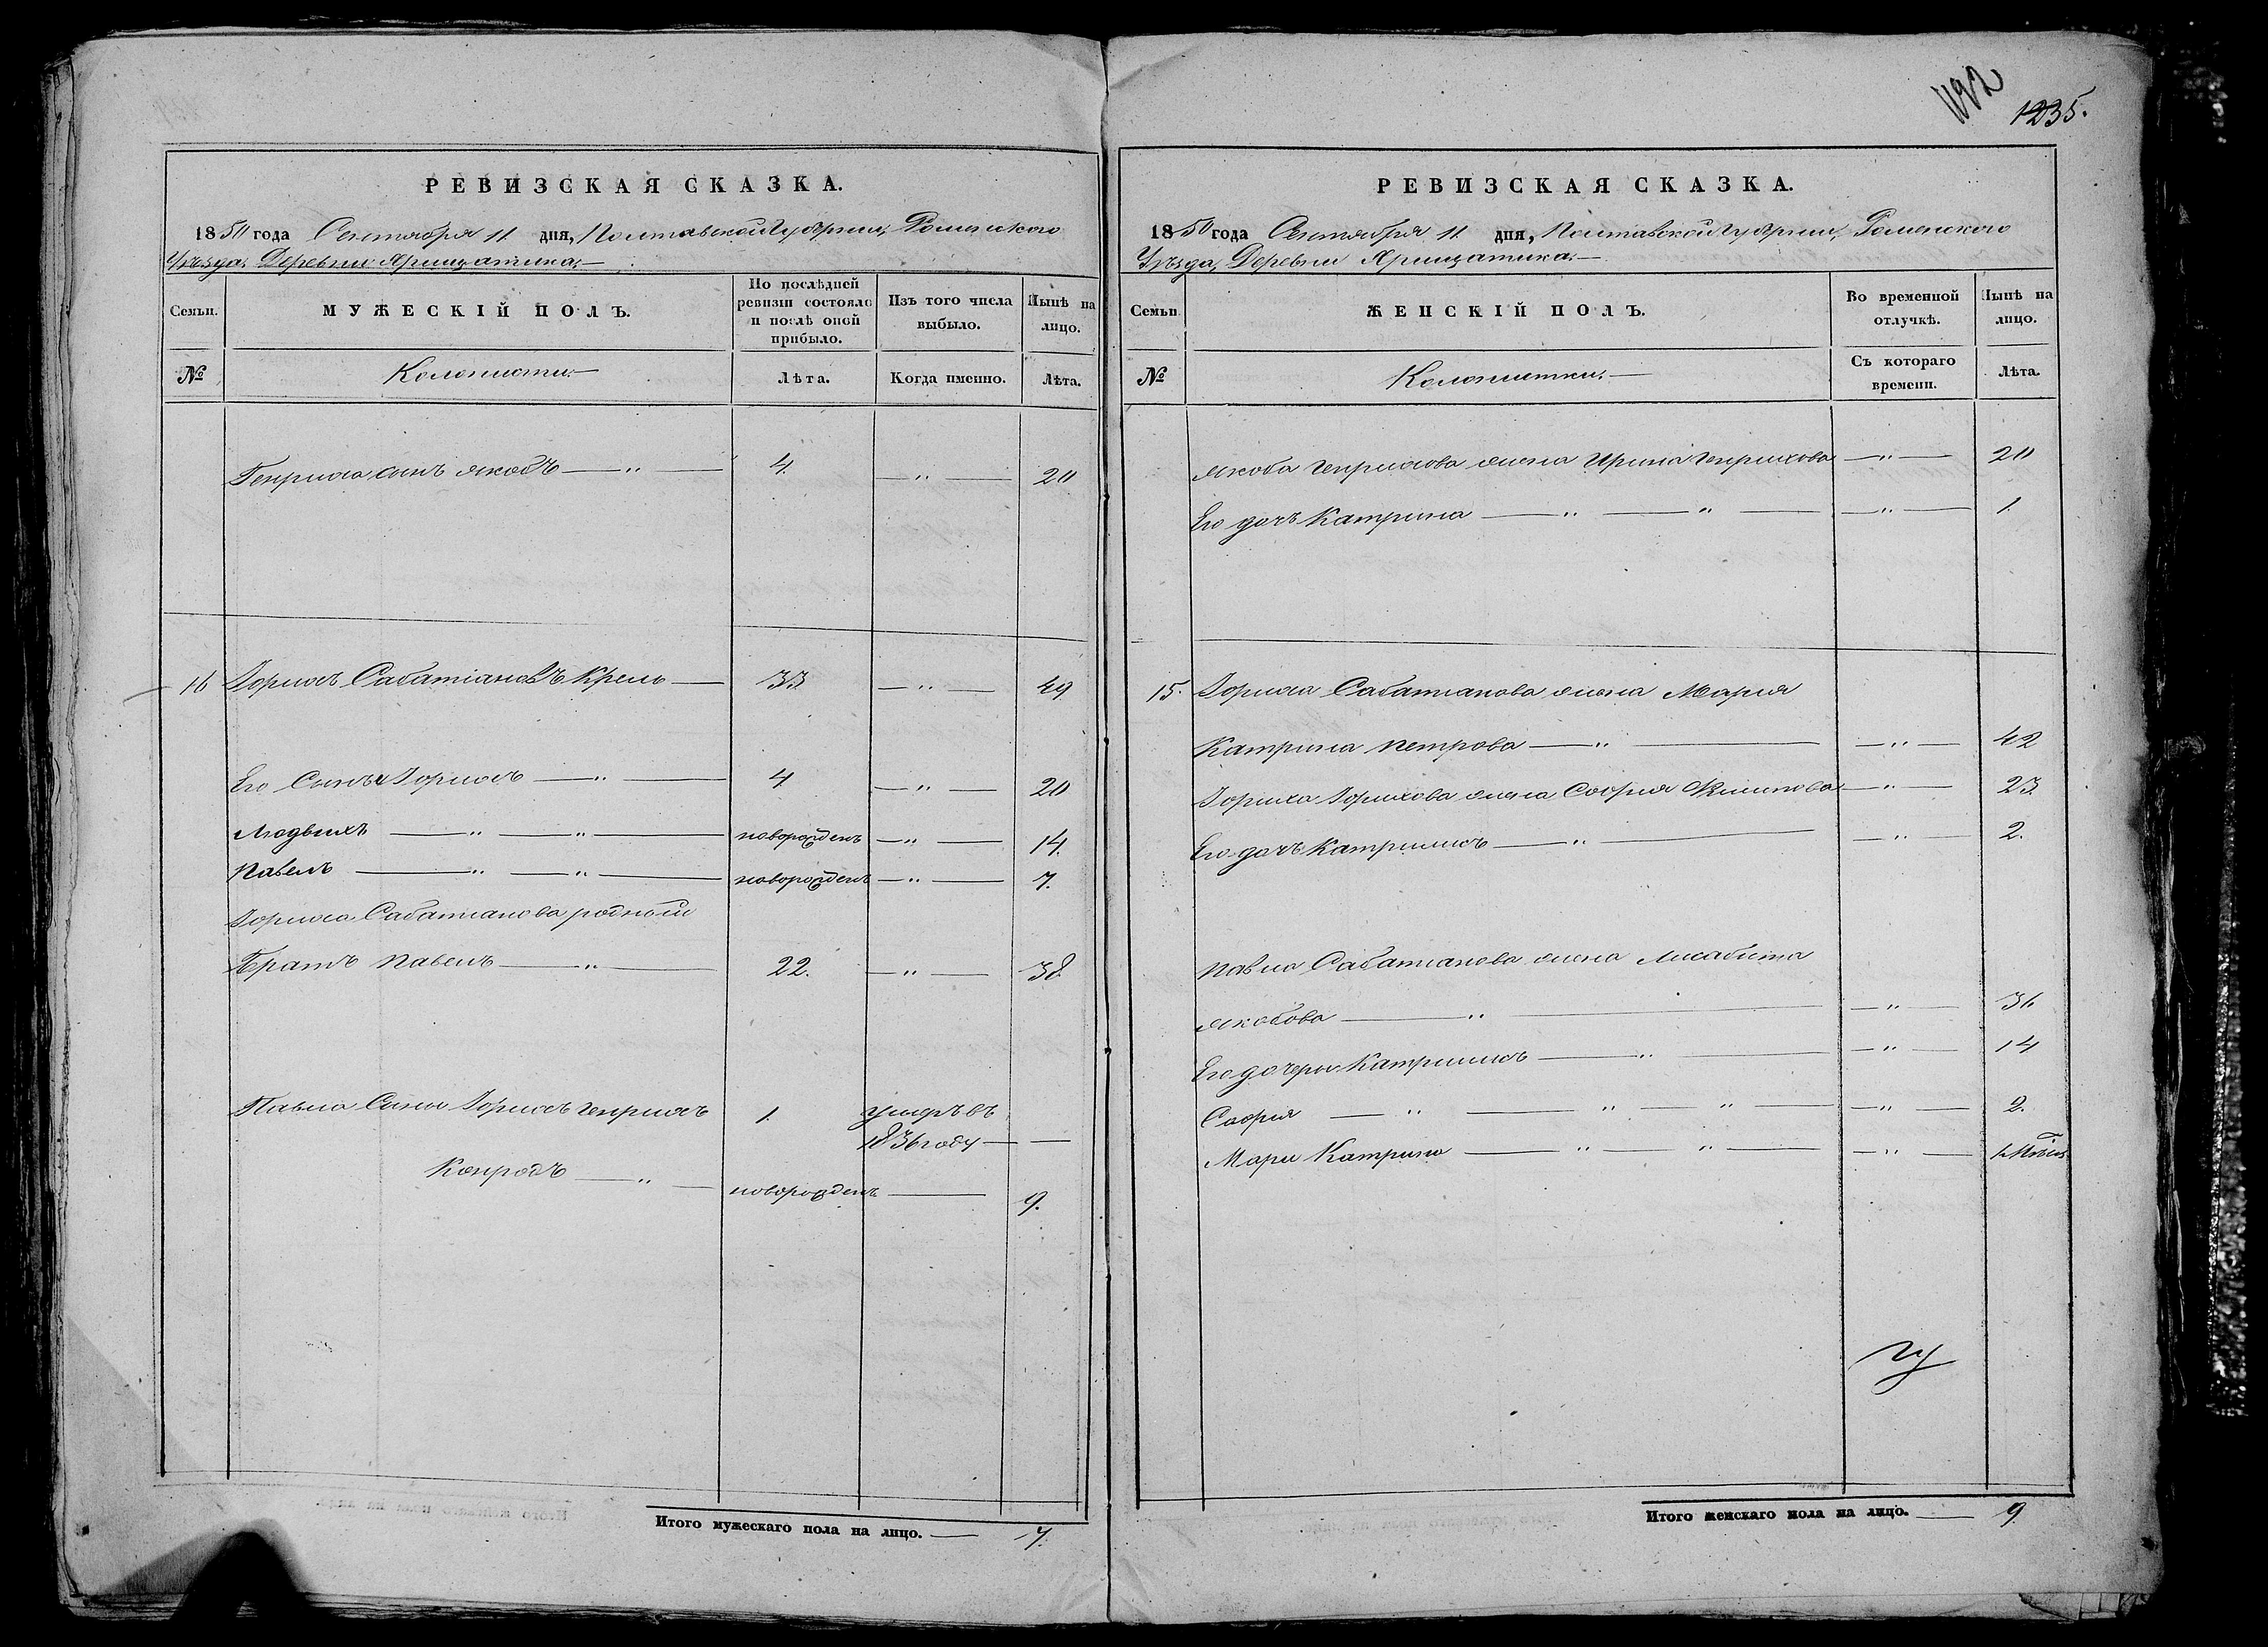 192
1235.
РЕВИЗСКАЯ СКАЗКА.
1850 года Сентября 11 дня, Полтавской Губернии, Роменского
Уѣзда, Деревни
Семьи.
МУЖЕСКІЙ ПОЛЪ.
По послѣдней ревизіи состояло и послѣ оной прибыло.
Изъ того числа выбыло.
Нынѣ на лицо.
№
Колонисты.
Лѣта.
Когда именно.
Лѣта.
Генриха сынъ Якобъ — " — 4 — " — 20
16 Іорихъ Сабатіановъ Крель — 33 — " — 49
Его Сынъ Іорихъ — " — 4 — " — 20
Людвихъ — " — " — новорожденъ — " — 14.
Павелъ — " — " — новорожденъ — " — 7.
Іориха Сабатианова родный
Братъ Павелъ — " — 22. — " — 38.
Павла Сыны Іорихъ Генрихъ 1. умеръ въ
1836 году — —
Конродъ — " — новорожденъ — 9.
Итого мужескаго пола на лицо. — 7.
РЕВИЗСКАЯ СКАЗКА.
1850 года Сентября 11 дня, Полтавской Губернии, Роменского
Уѣзда, Деревни
Семьи
ЖЕНСКІЙ ПОЛЪ.
Во временной отлучкѣ.
Нынѣ на лицо.
№
Колонистки. —
Съ котораго времени.
Лѣта.
Якоба Генрихова жена Ирина Генрихова — " — 20
Его дочъ Катрина — " — " — — " — 1.
15. Іориха Сабатианова жена Мария
Катрина Петрова — " — — " — 42
Іориха Іорихова жена София Филипова — " — 23.
Его дочъ Катринхъ — " — — " — 2.
Павла Сабатианова жена Лисабета
Якобова — " — — " — 36
Его дочеры Катринхъ — " — — " — 14
София — " — " — " — — " — 2.
Мари Катрина — " — " — — " —
Итого женскаго пола на лицо. — 9.